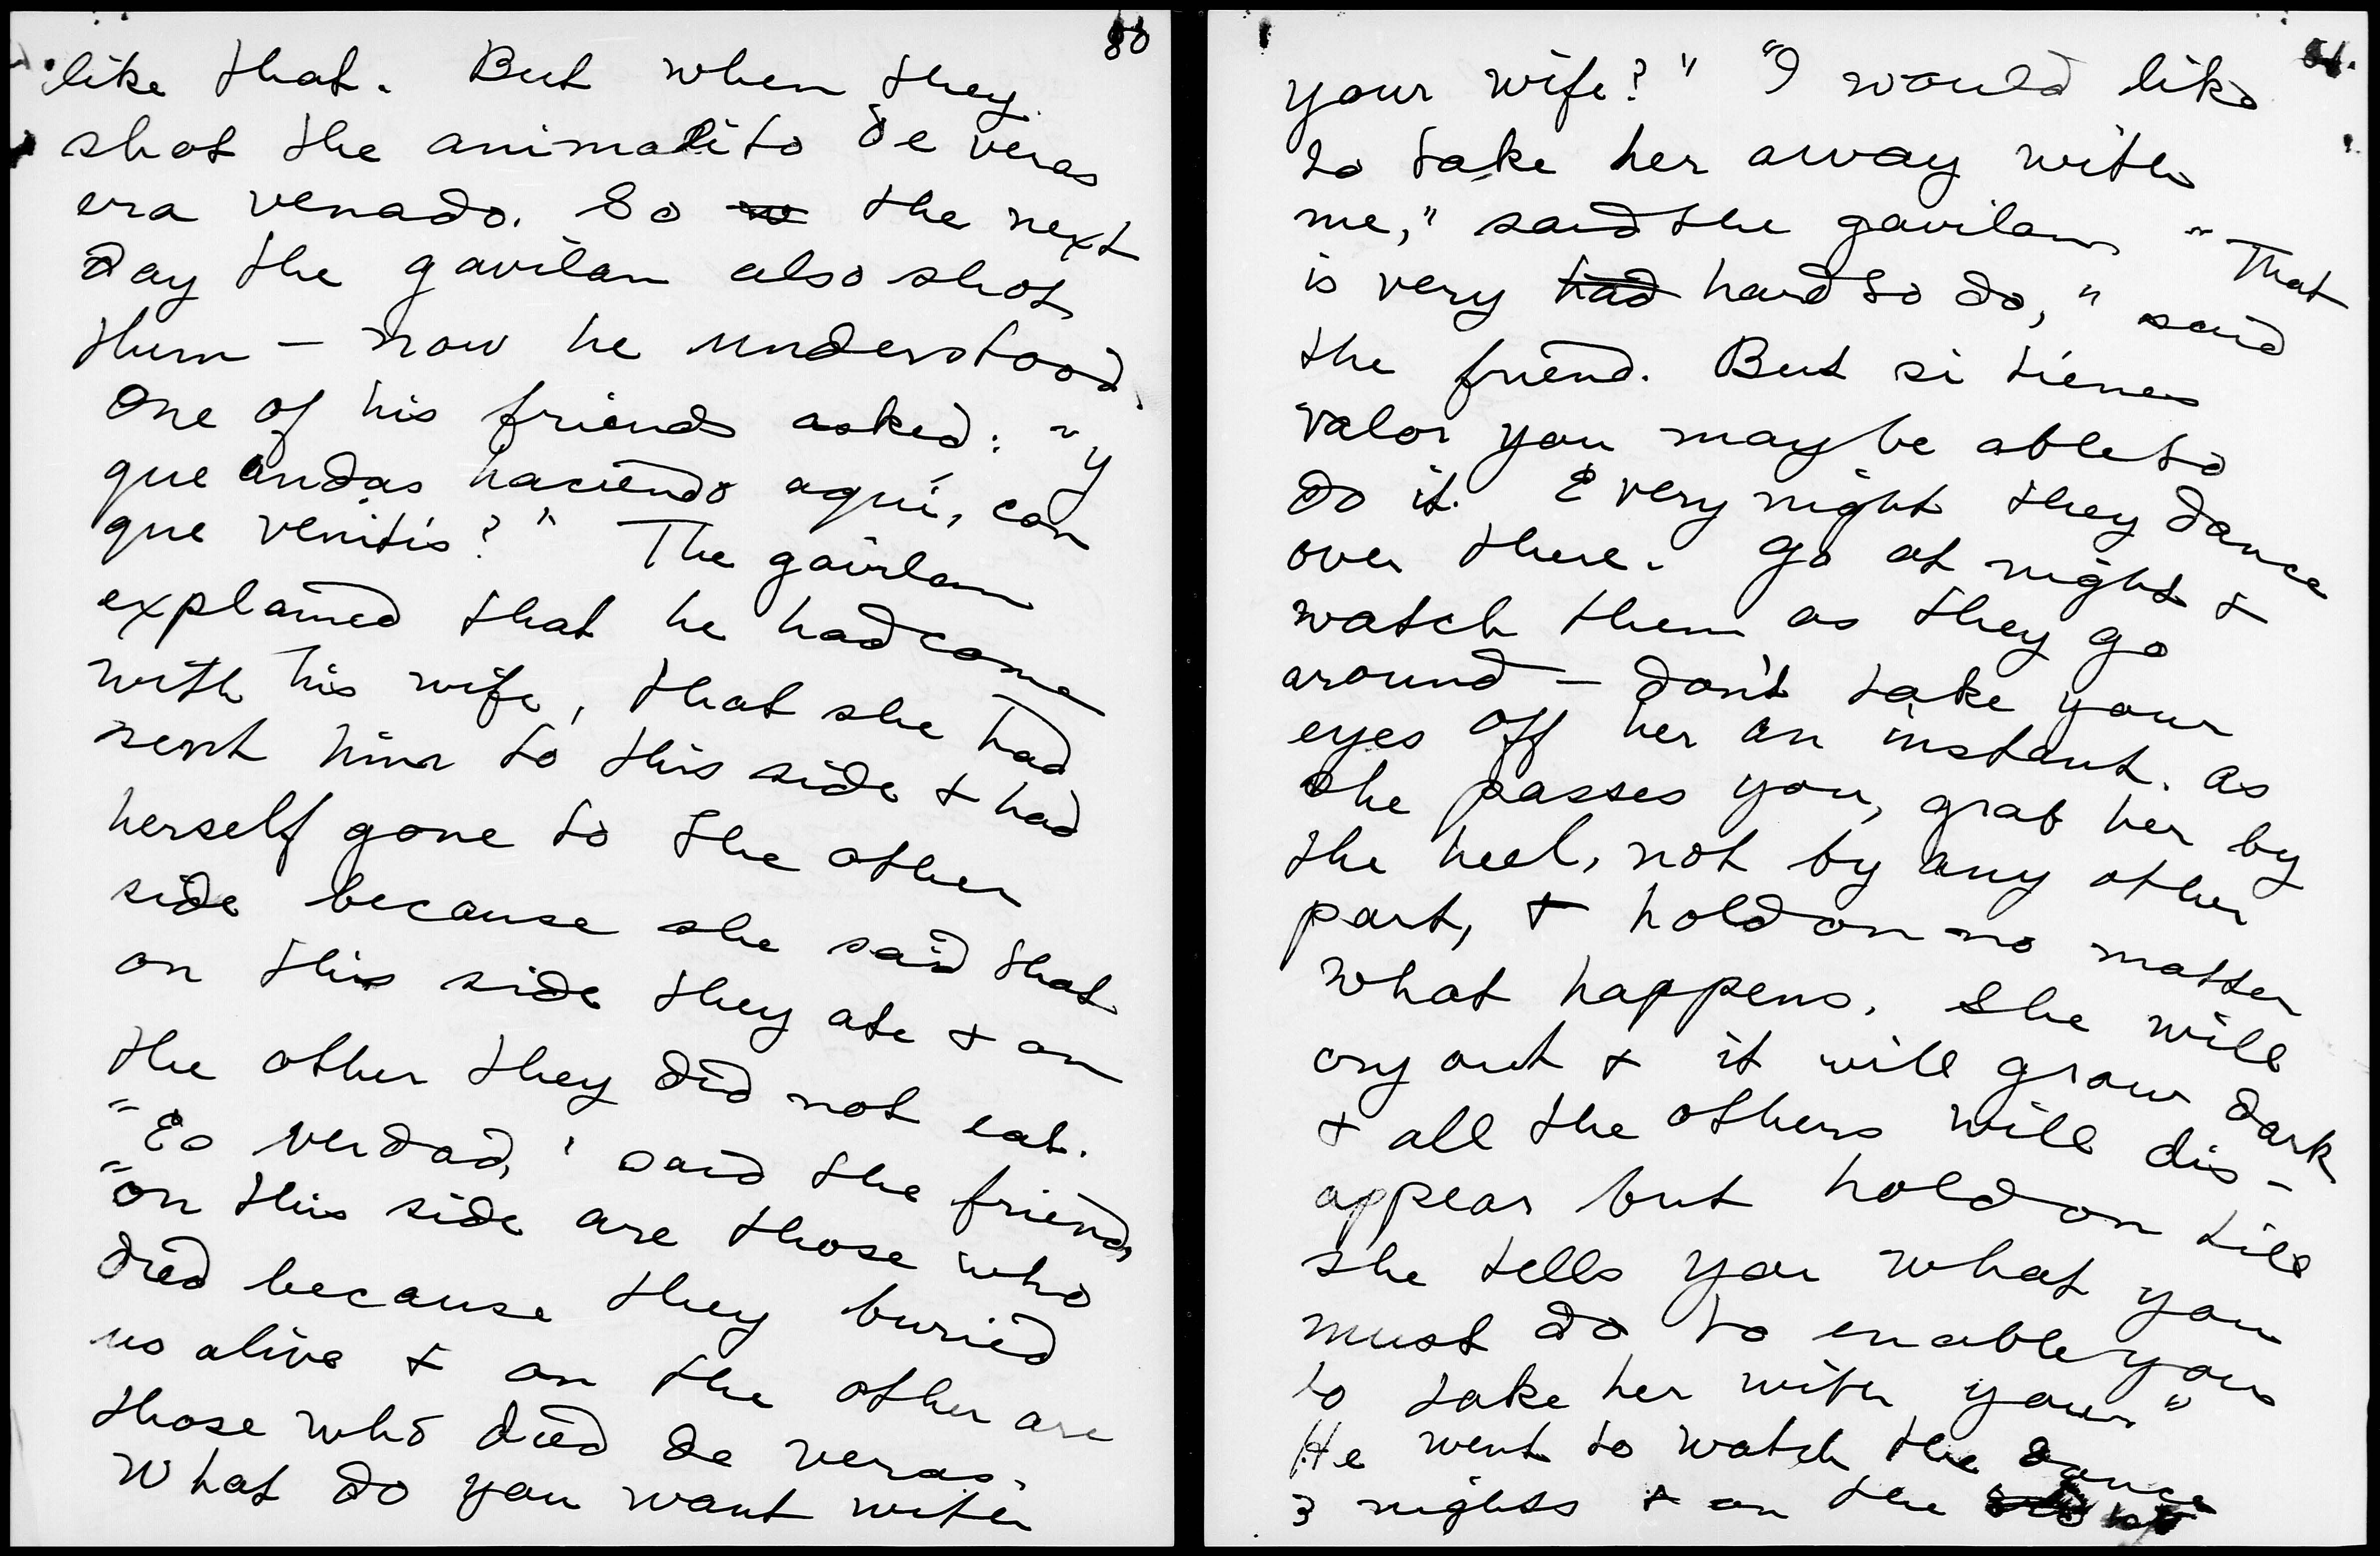 like that. But when they
shot the animalito de veras
era venado. So the next
day the gavilan also shot
them — now he understood.
One of his friends asked: "y
que andas haciendo aqui, con
que venitis?" The gavilan
explained that he had come
with his wife, that she had
sent him to this side + had
herself gone to the other
side because she said that
on this side they ate + on
the other they did not eat.
"Es verdad," said the friend,
"on this side are those who
died because they buried
us alive + on the other are
those who died de veras.
What do you want with
your wife?" "I would like
to take her away with
me," said the gavilan. "That
is very had hard to do," said
the friend. But si tienes
valor you may be able to
do it. Every night they dance
over there. Go at night +
watch them as they go
around — don't take your
eyes off her an instant. As
she passes you, grab her by
the heel, not by any other
part, + hold on no matter
what happens. She will
cry out + it will grow dark
+ all the others will dis-
appear but hold on till
she tells you what you
must do to enable you
to take her with you."
He went to watch the dance
3 nights + on the